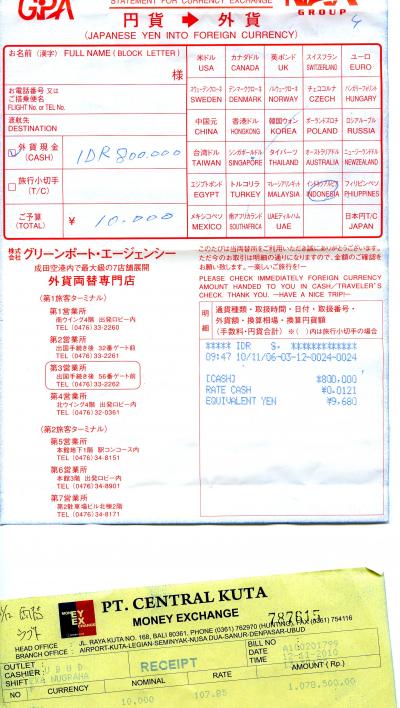 STATEMENT FOR CURRENCY EXCHANGE
GPA
NAA
GROUP
4
円貨 ➡ 外貨
(JAPANESE YEN INTO FOREIGN CURRENCY)
お名前 (漢字) FULL NAME (BLOCK LETTER)
様
お電話番号 又は
ご搭乗便名
FLIGHT No. or TEL No.
渡航先
DESTINATION
外貨現金
(CASH)
IDR 800.000
旅行小切手
(T/C)
ご予算
(TOTAL)
¥ 10.000
米ドル カナダドル 英ポンド スイスフラン ユーロ
USA CANADA UK SWITZERLAND EURO
スウェーデンクローネ デンマーククローネ ノルウェークローネ チェココルナ ハンガリーフォリント
SWEDEN DENMARK NORWAY CZECH HUNGARY
中国元 香港ドル 韓国ウォン ポーランドズロチ ロシアルーブル
CHINA HONGKONG KOREA POLAND RUSSIA
台湾ドル シンガポールドル タイバーツ オーストラリアドル ニュージーランドドル
TAIWAN SINGAPORE THAILAND AUSTRALIA NEWZEALAND
エジプトポンド トルコリラ マレーシアリンギット インドネシアルピア フィリピンペソ
EGYPT TURKEY MALAYSIA INDONESIA PHILIPPINES
メキシコペソ 南アフリカランド UAEディルハム 日本円T/C
MEXICO SOUTHAFRICA UAE JAPAN
株式会社 グリーンポート・エージェンシー
成田空港内で最大級の7店舗展開
外貨両替専門店
(第1旅客ターミナル)
第1営業所
南ウイング4階 出発ロビー内
TEL (0476) 33-2260
第2営業所
出国手続き後 32番ゲート前
TEL (0476) 33-2261
第3営業所
出国手続き後 56番ゲート前
TEL (0476) 33-2262
第4営業所
北ウイング4階 出発ロビー内
TEL (0476) 32-0361
(第2旅客ターミナル)
第5営業所
本館地下1階 駅コンコース内
TEL (0476) 34-8151
第6営業所
本館3階 出発ロビー内
TEL (0476) 34-8901
第7営業所
第2駐車場ビル北棟2階
TEL (0476) 34-8171
このたびは当両替所をご利用いただき誠にありがとうございます。
ただ今のお取引は明細の通りになりますので、金額のご確認を
お願い致します。—楽しいご旅行を!—
PLEASE CHECK IMMEDIATELY FOREIGN CURRENCY
AMOUNT HANDED TO YOU IN CASH/TRAVELER'S
CHECK. THANK YOU. —HAVE A NICE TRIP!—
明細
通貨種類・取扱時間・日付・取引番号・
外貨額・換算相場・換算円貨額
(手数料・円貨合計) ※( )内は旅行小切手の場合
***** IDR S. *************
09:47 10/11/06-03-12-0024-0024
[CASH] *800,000
RATE CASH ¥0.0121
EQUIVALENT YEN ¥9,680
MONEY EX CHANGE
PT. CENTRAL KUTA
MONEY EXCHANGE
787615
HEAD OFFICE : JL. RAYA KUTA NO. 168, BALI 80361, PHONE (0361) 762970 (HUNTING), FAX (0361) 754116
BRANCH OFFICE : AIRPORT-KUTA-LEGIAN-SEMINYAK-NUSA DUA-SANUR-DENPASAR-UBUD
OUTLET : UBUD
CASHIER : EKA NUGRAHA
SHIFT
RECEIPT
BILL NO A100201799
DATE 12-11-2010
TIME
NO CURRENCY NOMINAL RATE AMOUNT ( Rp.)
10,000 107.85 1,078,500.00